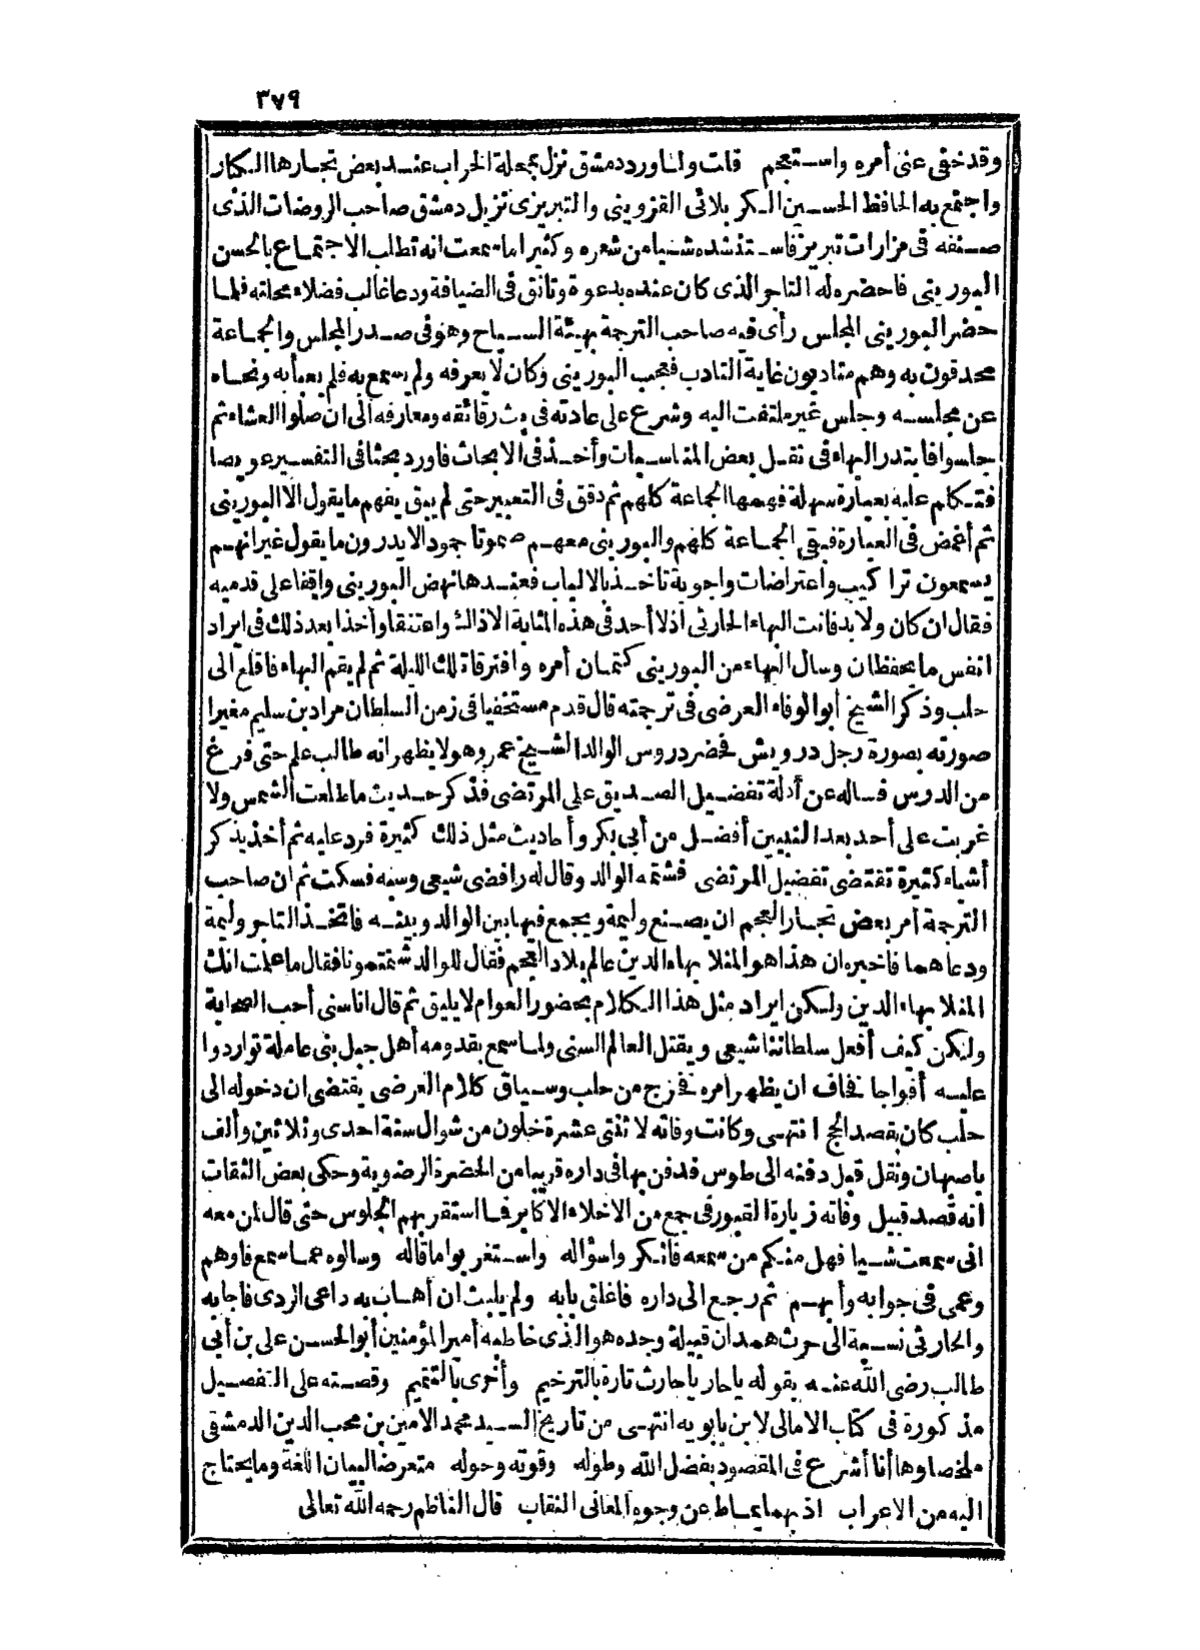 ٣٧٩
وقد خفى عنى أمره واستعجم قلت ولما ورد دمشق نزل بمحلة الخراب عند بعض تجارها الكبار
واجتمع به الحافظ الحسين الكربلائى القزوينى والتبريزى نزيل دمشق صاحب الروضات الذى
صنفه فى مزارات تبريز فاستنشده شيأ من شعره وكثيرا ما سمعت انه تطلب الاجتماع بالحسن
البورينى فاحضره له التاجر الذى كان عنده بدعوة وتانق فى الضيافة ودعا غالب فضلاء محلته فلما
حضر البورينى المجلس رأى فيه صاحب الترجمة بهيئة السياح وهو فى صدر المجلس والجماعة
محدقون به وهم متادبون غاية التادب فعجب البورينى وكان لا يعرفه ولم يسمع به فلم يعبأ به ونحاه
عن مجلسه وجلس غير ملتفت اليه وشرع على عادته فى بث رقائقه ومعارفه الى ان صلوا العشاء ثم
جلسوا فابتدر البهاء فى نقل بعض المناسبات وأخذ فى الابحاث فاورد بحثا فى التفسير عويصا
فتكلم عليه بعبارة سهلة فهمها الجماعة كلهم ثم دقق فى التعبير حتى لم يبق يفهم ما يقول الا البورينى
ثم أغمض فى العبارة فبقى الجماعة كلهم والبورينى معهم صموتا جمودا لا يدرون ما يقول غير انهم
يسمعون تراكيب واعتراضات واجوبة تاخذ بالالباب فعندها نهض البورينى واقفا على قدميه
فقال ان كان ولا بد فانت البهاء الحارثى اذ لا أحد فى هذه المثابة الا ذاك واعتنقا وأخذا بعد ذلك فى ايراد
انفس ما يحفظان وسال البهاء من البورينى كتمان أمره وافترقا تلك الليلة ثم لم يقم البهاء فاقلع الى
حلب وذكر الشيخ أبو الوفاء العرضى فى ترجمته قال قدم مستخفيا فى زمن السلطان مراد بن سليم مغيرا
صورته بصورة رجل درويش فحضر دروس الوالد الشيخ عمر وهو لا يظهر انه طالب علم حتى فرغ
من الدرس فساله عن أدلة تفضيل الصديق على المرتضى فذكر حديث ما طلعت الشمس ولا
غربت على أحد بعد النبيين أفضل من أبى بكر وأحاديث مثل ذلك كثيرة فرد عليه ثم أخذ يذكر
أشياء كثيرة تقتضى تفضيل المرتضى فشتمه الوالد وقال له رافضى شيعى وسبه فسكت ثم ان صاحب
الترجمة أمر بعض تجار العجم ان يصنع وليمة ويجمع فيها بين الوالد وبينه فاتخذ التاجر وليمة
ودعاهما فاخبره ان هذا هو المنلا بهاء الدين عالم بلاد العجم فقال للوالد شتمتمونا فقال ما علمت انك
المنلا بهاء الدين ولكن ايراد مثل هذا الكلام بحضور العوام لا يليق ثم قال انا سنى أحب الصحابة
ولكن كيف أفعل سلطاننا شيعى ويقتل العالم السنى ولما سمع بقدومه أهل جبل بنى عاملة تواردوا
عليه أفواجا فخاف ان يظهر امره فخرج من حلب وسياق كلام العرضى يقتضى ان دخوله الى
حلب كان بقصد الحج انتهى وكانت وفاته لاثنتى عشرة خلون من شوال سنة احدى وثلاثين وألف
باصبهان ونقل قبل دفنه الى طوس فدفن بها فى داره قريبا من الحضرة الرضوية وحكى بعض الثقات
انه قصد قبيل وفاته زيارة القبور فى جمع من الاخلاء الاكابر فما استقر بهم الجلوس حتى قال لمن معه
انى سمعت شيأ فهل منكم من سمعه فانكروا سؤاله واستغربوا ما قاله وسالوه عما سمع فاوهم
وعمى فى جوابه وأبهم ثم رجع الى داره فاغلق بابه ولم يلبث ان أهاب به داعى الردى فاجابه
والحارثى نسبة الى حرث همدان قبيلة وجده هو الذى خاطبه أمير المؤمنين أبو الحسن على بن أبى
طالب رضى الله عنه بقوله يا حار يا حارث تارة بالترخيم وأخرى بالتتميم وقصته على التفصيل
مذكورة فى كتاب الامالى لابن بابويه انتهى من تاريخ السيد محمد الامين بن محب الدين الدمشقى
ملخصا وها أنا أشرع فى المقصود بفضل الله وطوله وقوته وحوله متعرضا لبيان اللغة وما يحتاج
اليه من الاعراب اذ بهما يماط عن وجوه المعانى النقاب قال الناظم رحمه الله تعالى